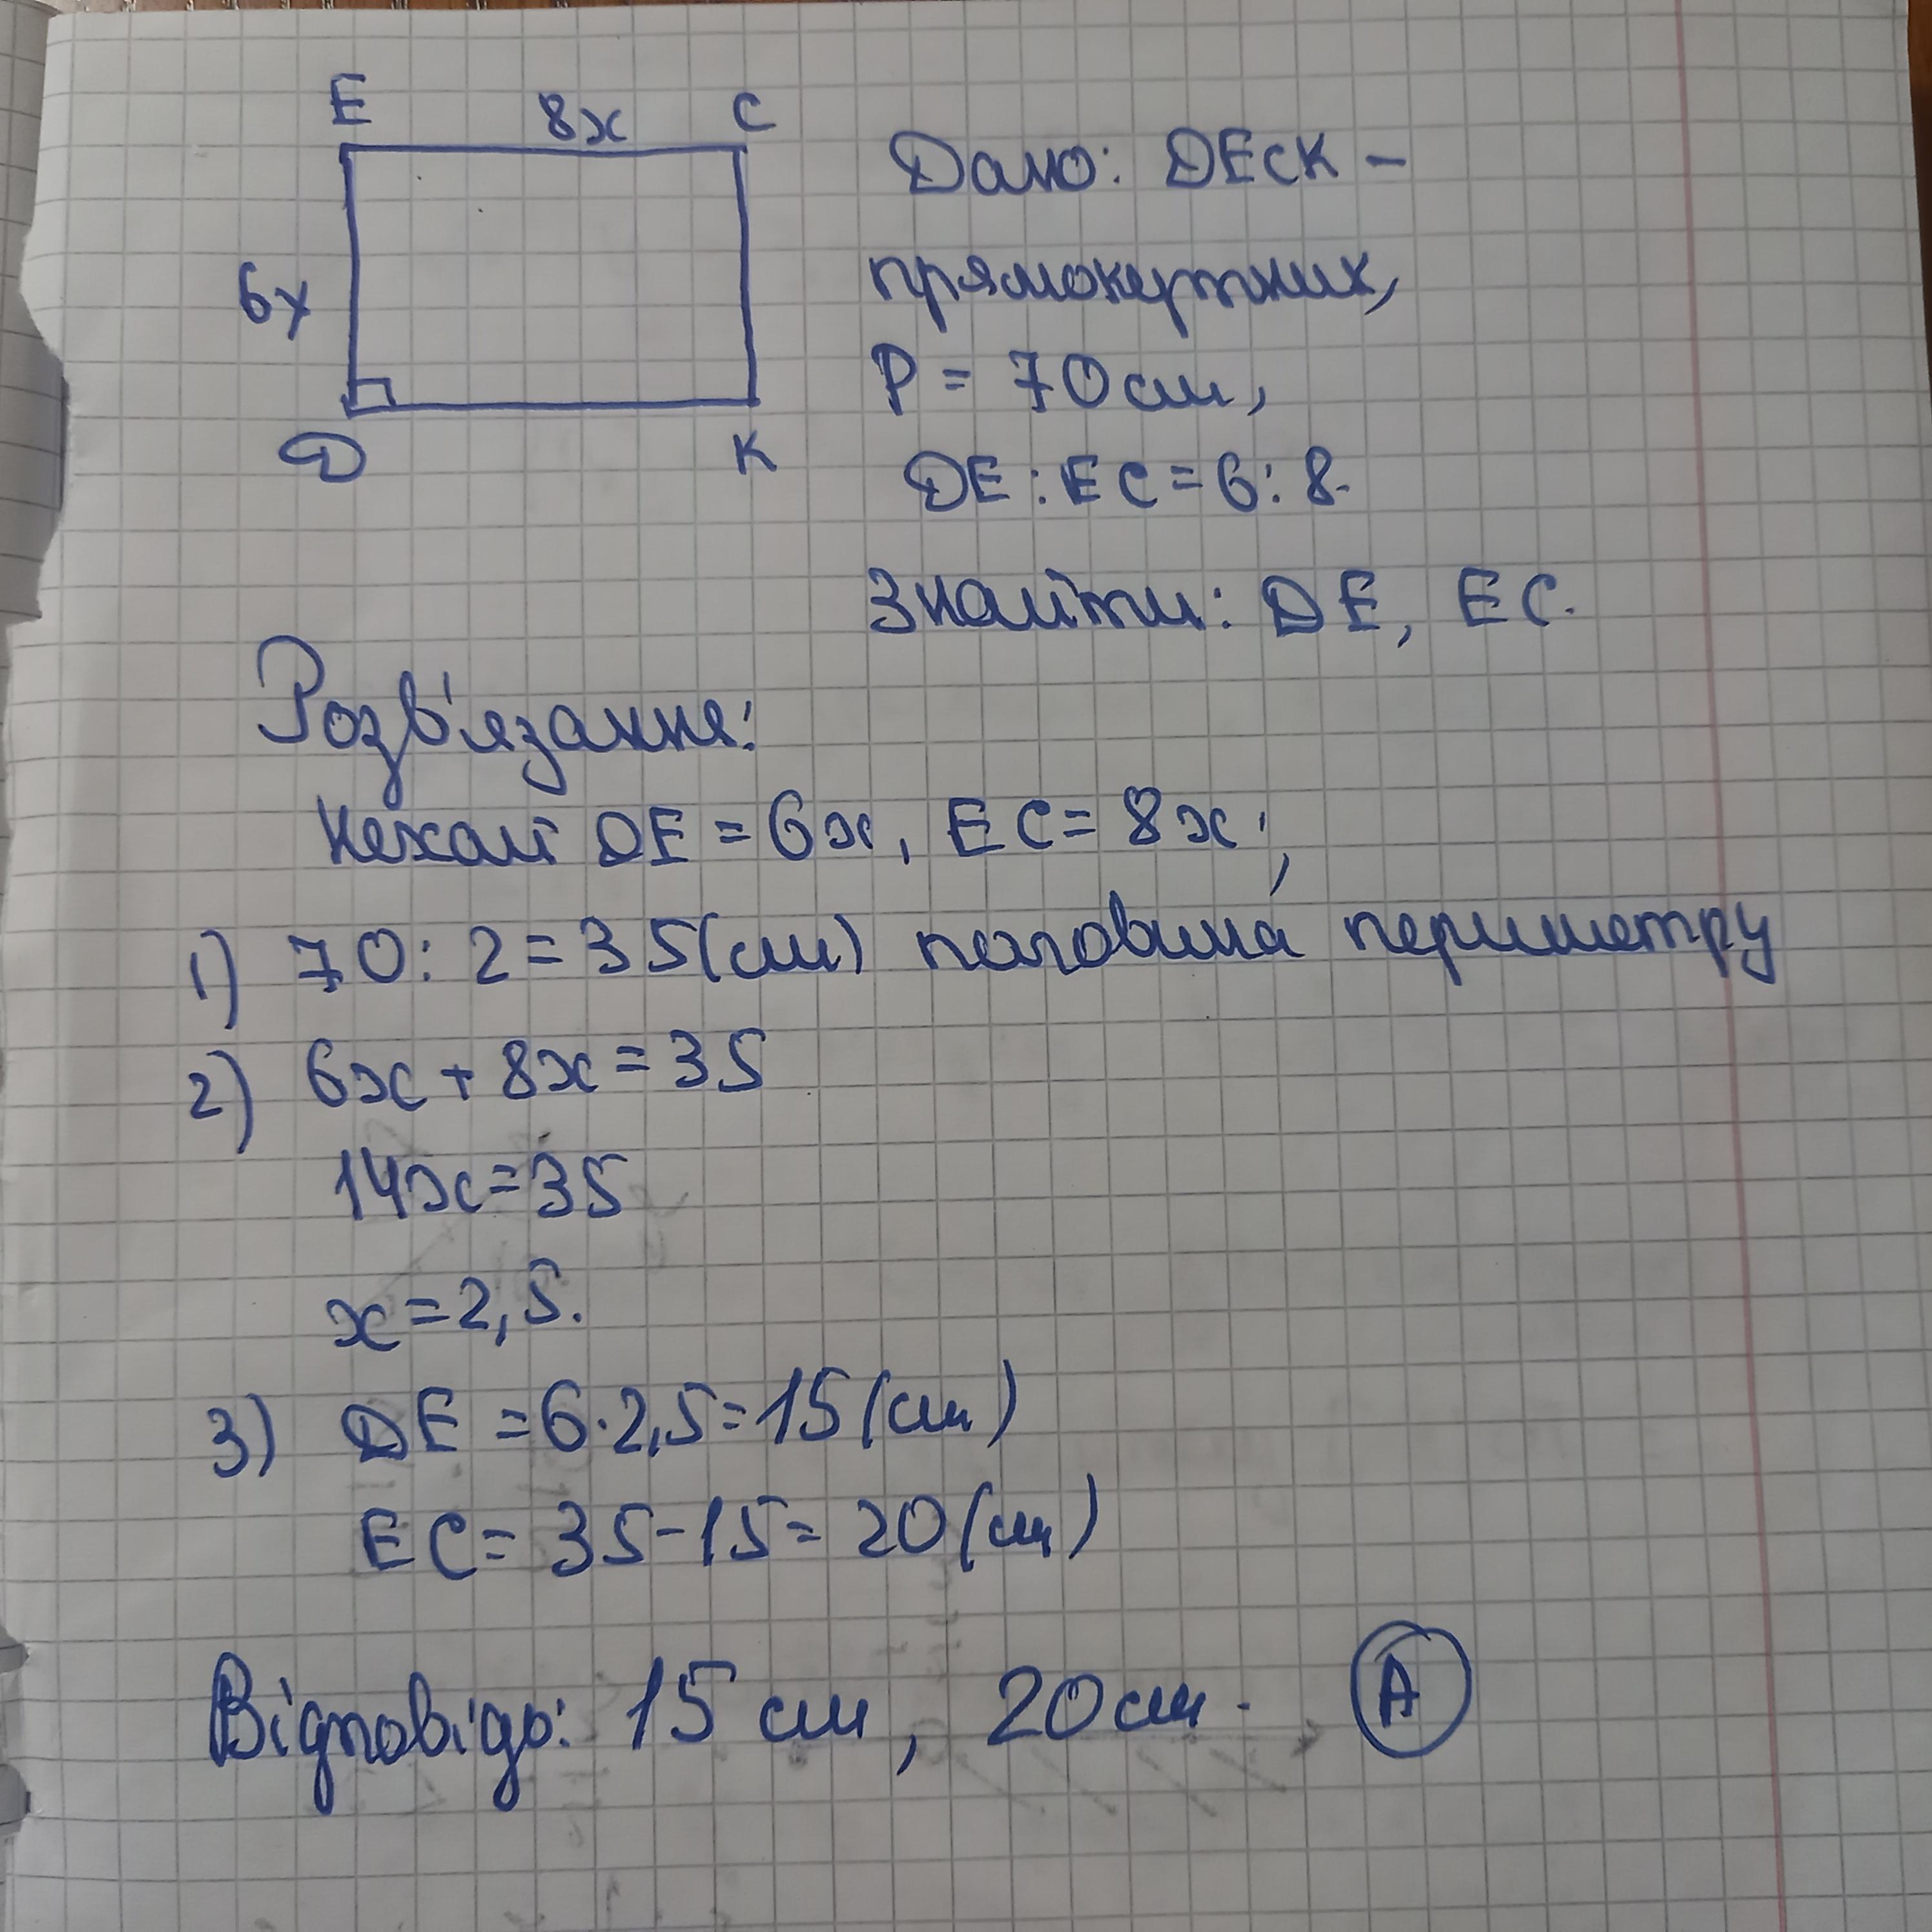 E 8x C
6x
D K
Дано: DECK –
прямокутник,
P = 70 см,
DE : EC = 6 : 8.
Знайти: DE, EC.
Розв'язання:
Нехай DE = 6x, EC = 8x;
1) 70 : 2 = 35 (см) половина периметру
2) 6x + 8x = 35
14x = 35
x = 2,5.
3) DE = 6 · 2,5 = 15 (см)
EC = 35 - 15 = 20 (см)
Відповідь: 15 см, 20 см. А